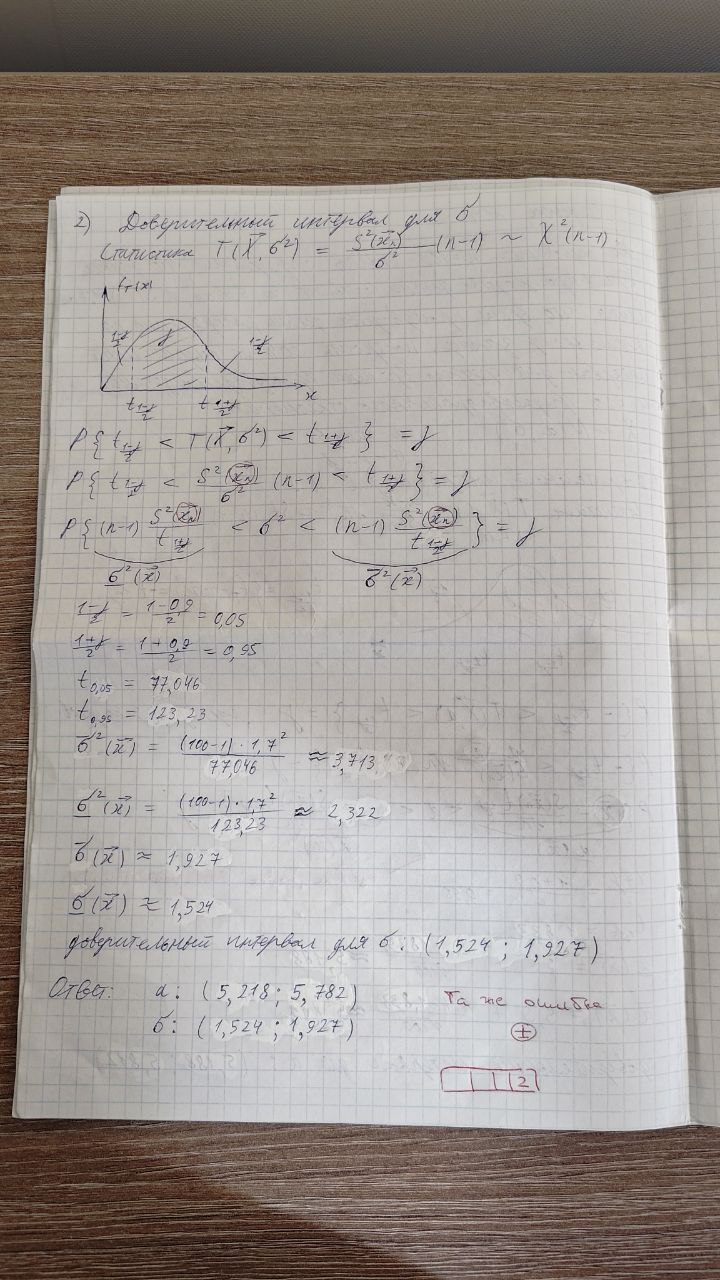 2) Доверительный интервал для σ
Статистика T(X⃗, σ²) = S²(x⃗ₙ)/σ² (n-1) ~ χ²(n-1)
f_T(x)
(1-γ)/2 γ (1-γ)/2
t_{(1-γ)/2} t_{(1+γ)/2} x
P{ t_{(1-γ)/2} < T(X⃗, σ²) < t_{(1+γ)/2} } = γ
P{ t_{(1-γ)/2} < S²(x⃗ₙ)/σ² (n-1) < t_{(1+γ)/2} } = γ
P{ (n-1) S²(x⃗ₙ)/t_{(1+γ)/2} < σ² < (n-1) S²(x⃗ₙ)/t_{(1-γ)/2} } = γ
σ̲²(x⃗) σ̅²(x⃗)
(1-γ)/2 = (1-0,9)/2 = 0,05
(1+γ)/2 = (1+0,9)/2 = 0,95
t_{0,05} = 77,046
t_{0,95} = 123,23
σ̅²(x⃗) = (100-1)·1,7²/77,046 ≈ 3,713
σ̲²(x⃗) = (100-1)·1,7²/123,23 ≈ 2,322
σ̅(x⃗) ≈ 1,927
σ̲(x⃗) ≈ 1,524
доверительный интервал для σ: (1,524 ; 1,927)
Ответ: a: (5,218 ; 5,782)
σ: (1,524 ; 1,927)
Та же ошибка
+
2